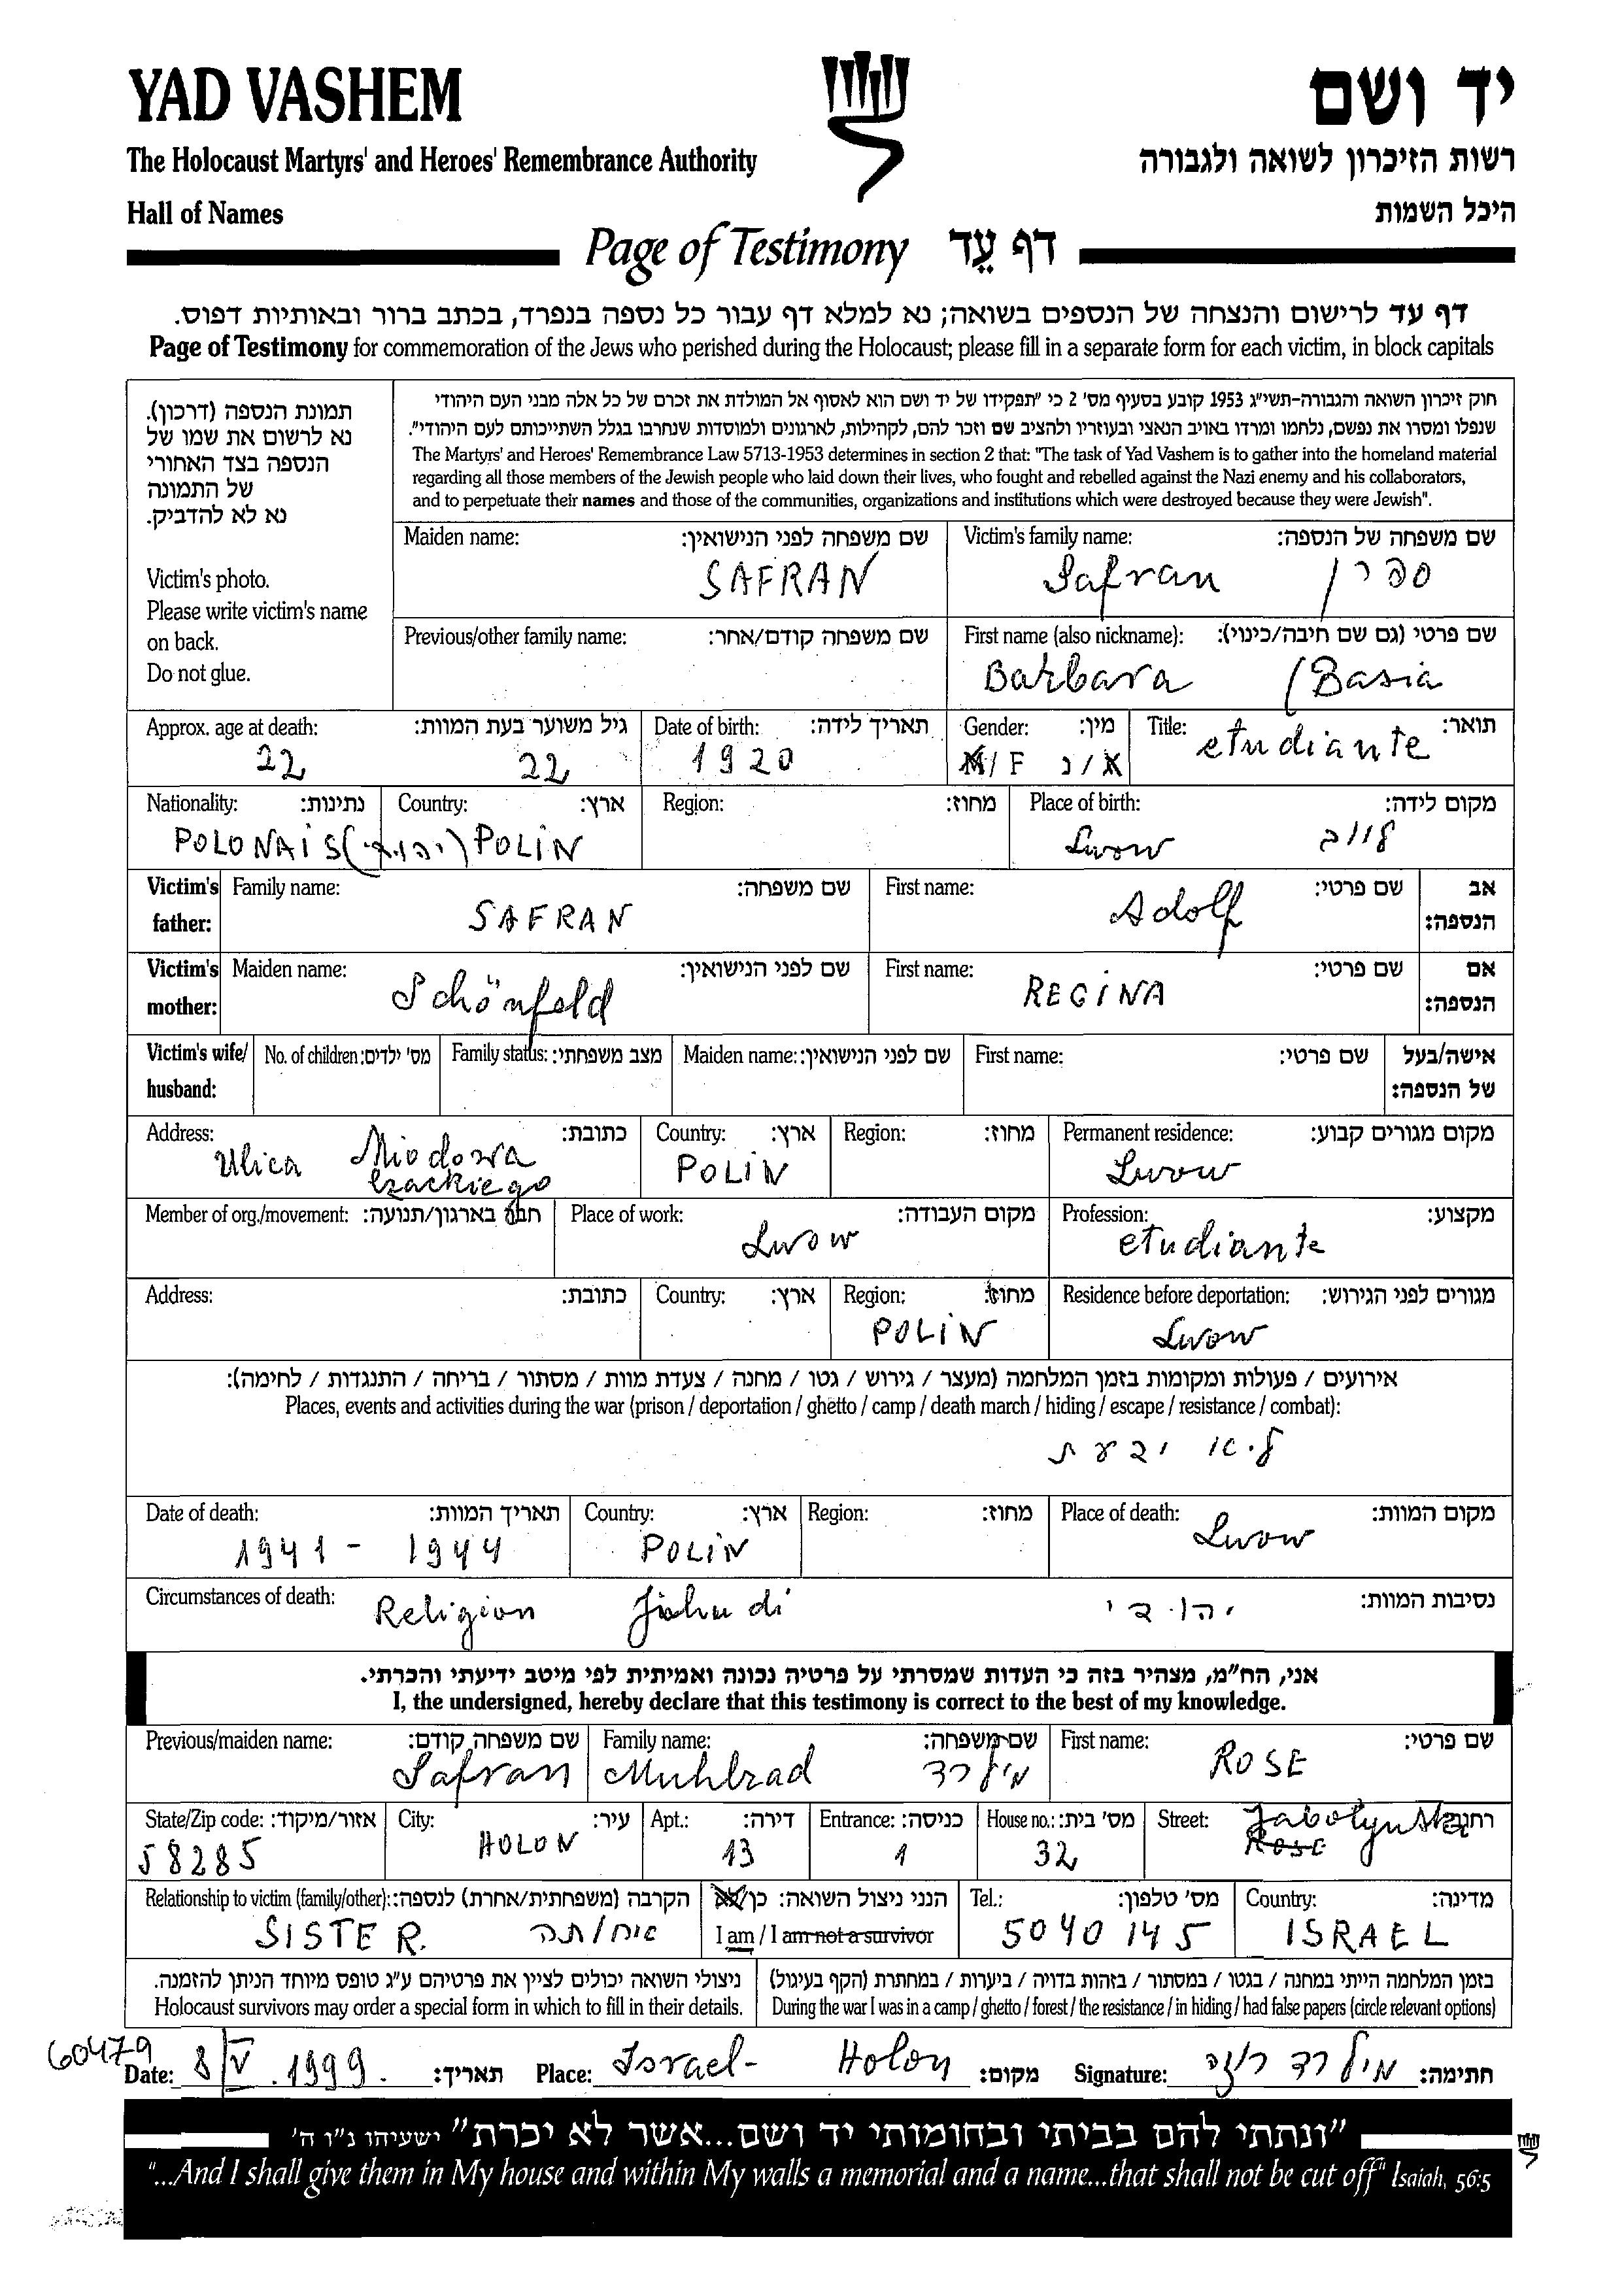 YAD VASHEM
יד ושם
The Holocaust Martyrs' and Heroes' Remembrance Authority
רשות הזיכרון לשואה ולגבורה
Hall of Names
היכל השמות
Page of Testimony דף עֵד
דף עד לרישום והנצחה של הנספים בשואה; נא למלא דף עבור כל נספה בנפרד, בכתב ברור ובאותיות דפוס.
Page of Testimony for commemoration of the Jews who perished during the Holocaust; please fill in a separate form for each victim, in block capitals
תמונת הנספה (דרכון).
נא לרשום את שמו של
הנספה בצד האחורי
של התמונה
נא לא להדביק.
Victim's photo.
Please write victim's name
on back.
Do not glue.
חוק זיכרון השואה והגבורה-תשי״ג 1953 קובע בסעיף מס' 2 כי ״תפקידו של יד ושם הוא לאסוף אל המולדת את זכרם של כל אלה מבני העם היהודי
שנפלו ומסרו את נפשם, נלחמו ומרדו באויב הנאצי ובעוזריו ולהציב שם וזכר להם, לקהילות, לארגונים ולמוסדות שנחרבו בגלל השתייכותם לעם היהודי״.
The Martyrs' and Heroes' Remembrance Law 5713-1953 determines in section 2 that: "The task of Yad Vashem is to gather into the homeland material
regarding all those members of the Jewish people who laid down their lives, who fought and rebelled against the Nazi enemy and his collaborators,
and to perpetuate their names and those of the communities, organizations and institutions which were destroyed because they were Jewish".
Maiden name: שם משפחה לפני הנישואין:
SAFRAN
Victim's family name: שם משפחה של הנספה:
Safran ספרן
Previous/other family name: שם משפחה קודם/אחר:
First name (also nickname): שם פרטי (גם שם חיבה/כינוי):
Barbara (Basia
Approx. age at death: גיל משוער בעת המוות:
22 22
Date of birth: תאריך לידה:
1920
Gender: מין:
M/F ז/נ
Title: תואר:
etudiante
Nationality: נתינות:
POLONAIS (יהודי)
Country: ארץ:
POLIN
Region: מחוז:
Place of birth: מקום לידה:
Lwow לווב
Victim's father: Family name: שם משפחה:
SAFRAN
First name: שם פרטי:
Adolf
אב הנספה:
Victim's mother: Maiden name: שם לפני הנישואין:
Schönfeld
First name: שם פרטי:
REGINA
אם הנספה:
Victim's wife/ husband: No. of children: מס' ילדים: Family status: מצב משפחתי: Maiden name: שם לפני הנישואין: First name: שם פרטי: אישה/בעל של הנספה:
Address: כתובת:
Ulica Miodowa
Czackiego
Country: ארץ:
POLIN
Region: מחוז:
Permanent residence: מקום מגורים קבוע:
Lwow
Member of org./movement: חבר בארגון/תנועה:
Place of work: מקום העבודה:
Lwow
Profession: מקצוע:
etudiante
Address: כתובת:
Country: ארץ:
Region: מחוז:
POLIN
Residence before deportation: מגורים לפני הגירוש:
Lwow
אירועים / פעולות ומקומות בזמן המלחמה (מעצר / גירוש / גטו / מחנה / צעדת מוות / מסתור / בריחה / התנגדות / לחימה):
Places, events and activities during the war (prison / deportation / ghetto / camp / death march / hiding / escape / resistance / combat):
Date of death: תאריך המוות:
1941 - 1944
Country: ארץ:
POLIN
Region: מחוז:
Place of death: מקום המוות:
Lwow
Circumstances of death: נסיבות המוות:
Religion Jiehudi יהודי
אני, הח״מ, מצהיר בזה כי העדות שמסרתי על פרטיה נכונה ואמיתית לפי מיטב ידיעתי והכרתי.
I, the undersigned, hereby declare that this testimony is correct to the best of my knowledge.
Previous/maiden name: שם משפחה קודם:
Safran
Family name: שם משפחה:
Muhlrad מילרד
First name: שם פרטי:
ROSE
State/Zip code: אזור/מיקוד:
58285
City: עיר:
HOLON
Apt.: דירה:
13
Entrance: כניסה:
1
House no.: מס' בית:
32
Street: רחוב:
Rose
Relationship to victim (family/other): הקרבה (משפחתית/אחרת) לנספה:
SISTER.
הנני ניצול השואה: כן/לא
I am / I am not a survivor
Tel.: מס' טלפון:
5040145
Country: מדינה:
ISRAEL
ניצולי השואה יכולים לציין את פרטיהם ע״ג טופס מיוחד הניתן להזמנה.
Holocaust survivors may order a special form in which to fill in their details.
בזמן המלחמה הייתי במחנה / בגטו / במסתור / בזהות בדויה / ביערות / במחתרת (הקף בעיגול)
During the war I was in a camp / ghetto / forest / the resistance / in hiding / had false papers (circle relevant options)
60479
Date: 8 V .1999. תאריך: Place: Israel- Holon מקום: Signature: מילרד רוזה חתימה:
״ונתתי להם בביתי ובחומותי יד ושם...אשר לא יכרת״ ישעיהו נ״ו ה'
"...And I shall give them in My house and within My walls a memorial and a name...that shall not be cut off" Isaiah, 56:5